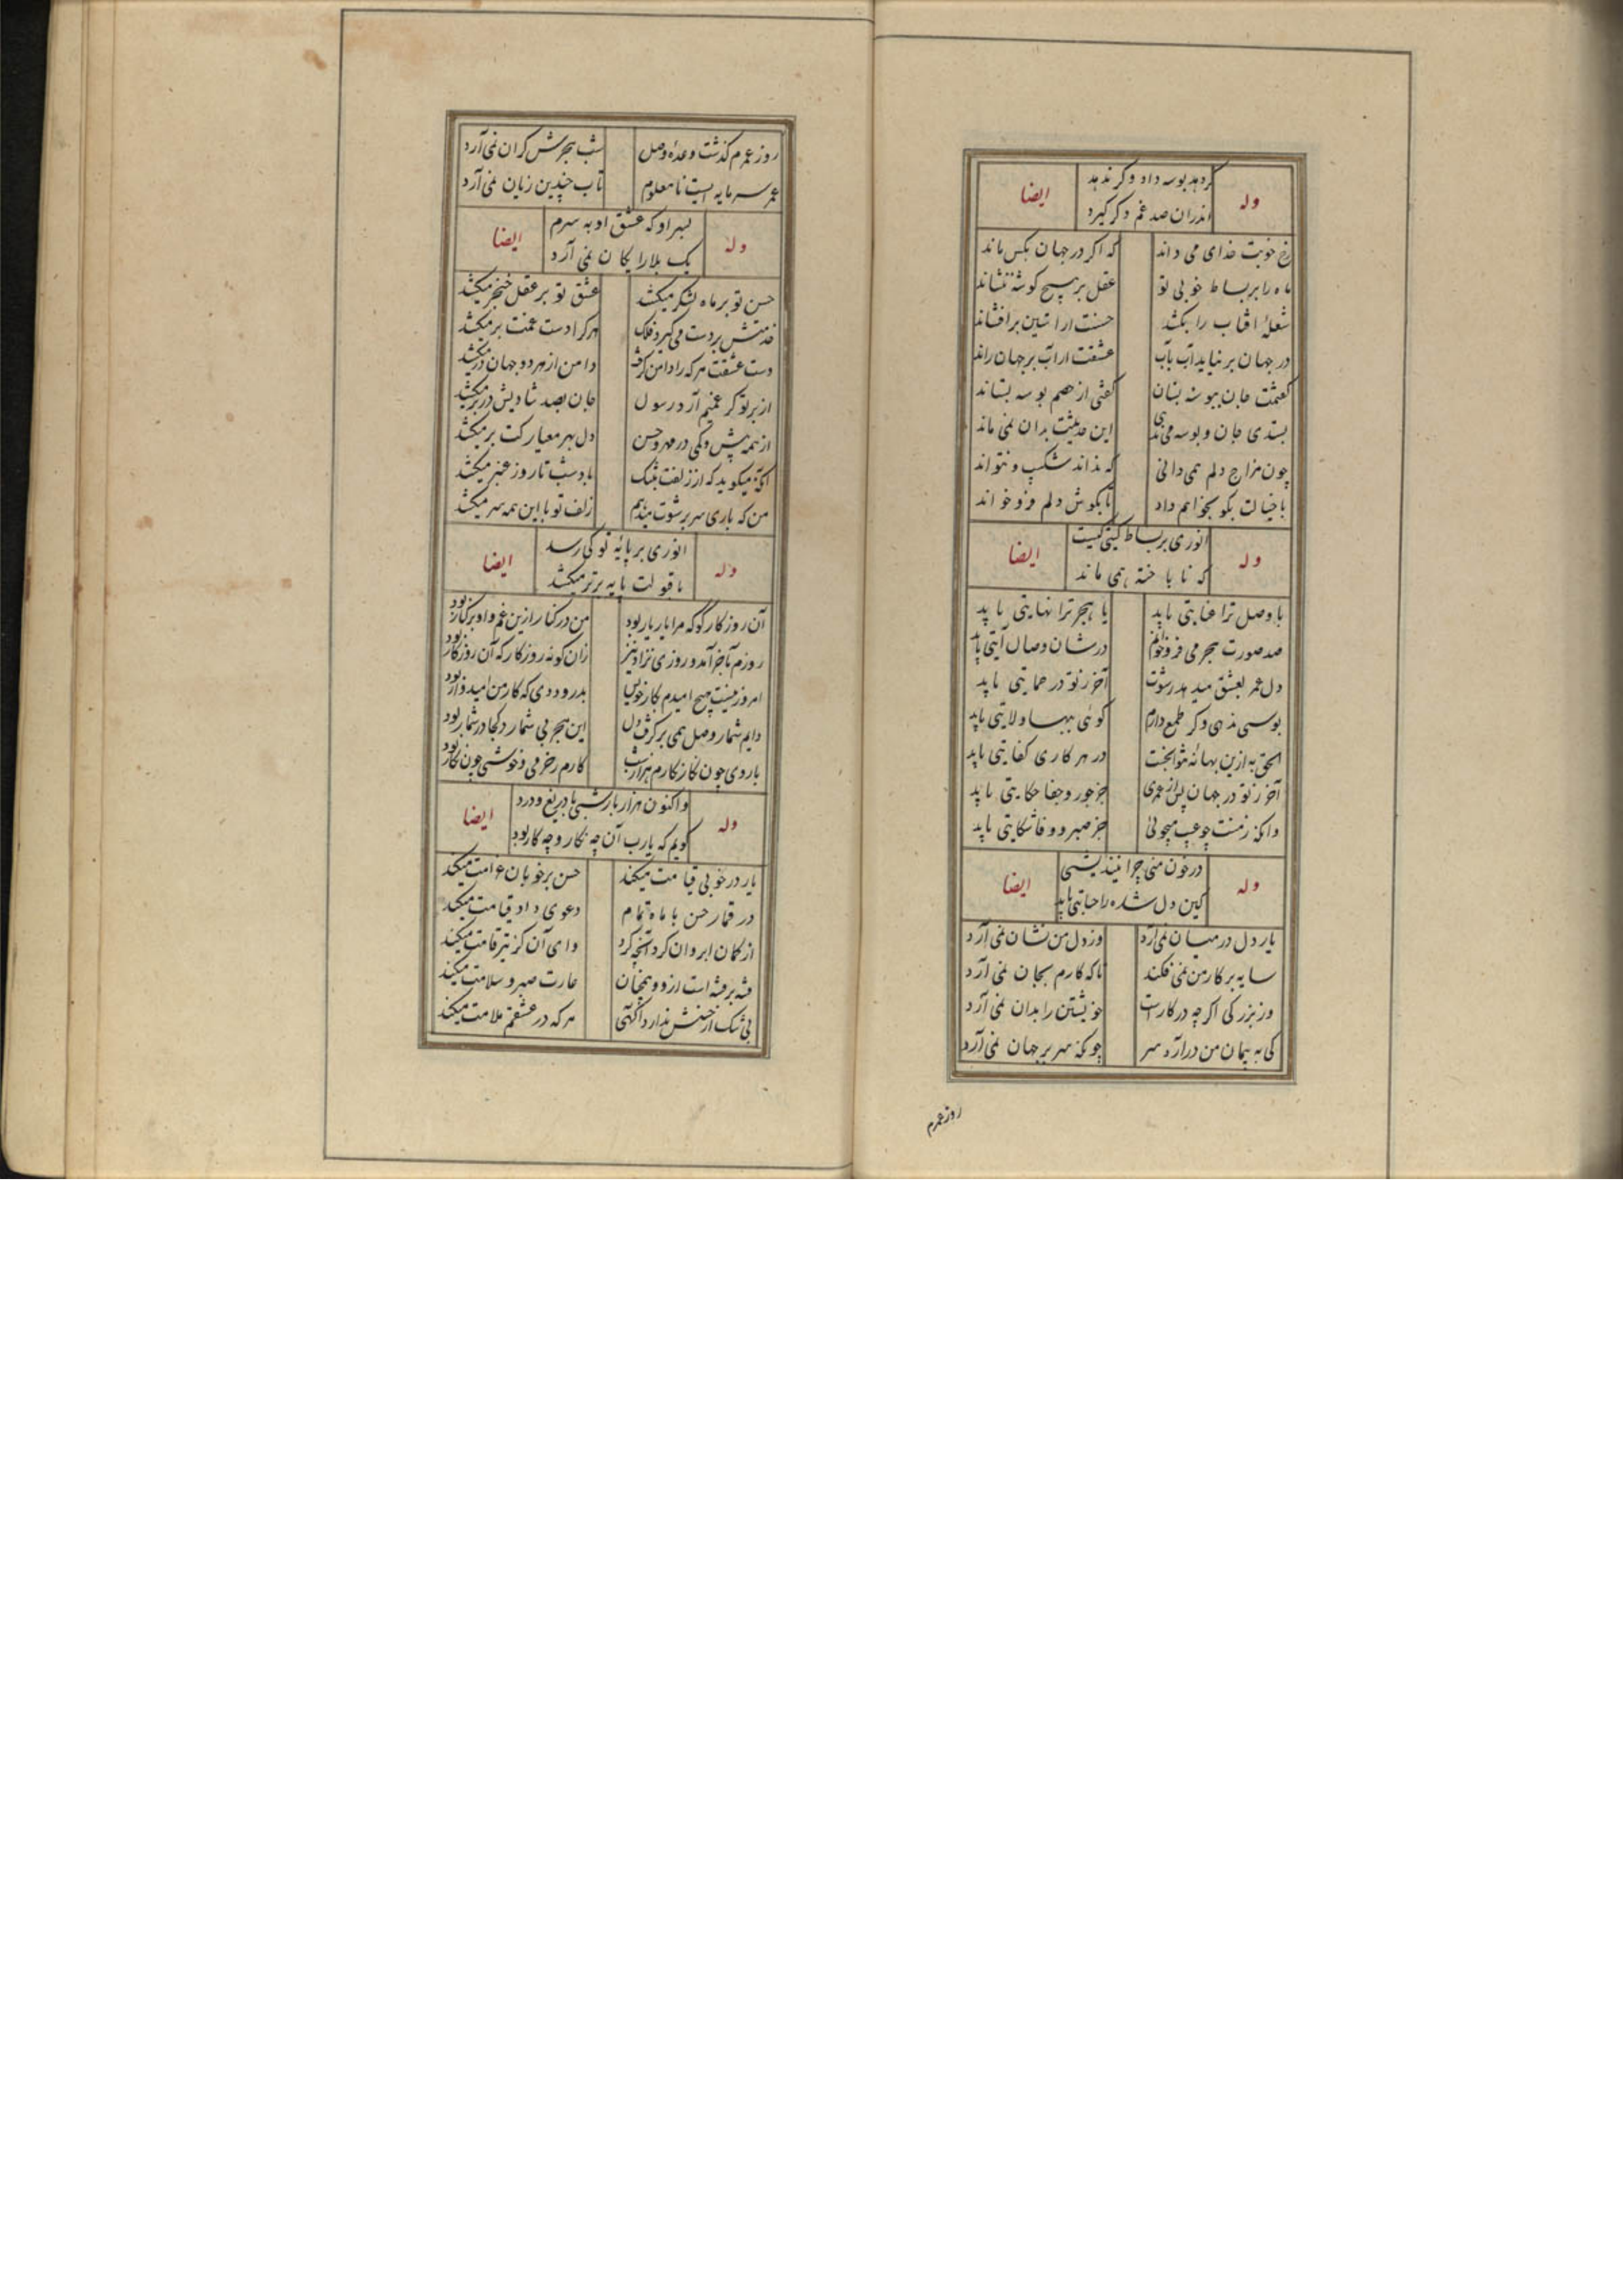 کردهد بوسه داد و کر ندهد
وله ایضا
اندران صد غم دکر کیرد
رخ خوبت خدای می داند که اکر در جهان بکس ماند
ماه را بر بساط خوبی تو عقل بر هیچ کوشه ننشاند
شعلهٔ افتاب را بکشد حسنت ار استین برافشاند
در جهان بر نیاید آب بآب عشقت ار آب بر جهان راند
کفتمت جان ببوسه بستان کفتی از خصم بوسه بستاند
بستدی جان و بوسه می ندهی این حدیثت بدان نمی ماند
چون مزاج دلم همی دانی که نداند شکیب و نتواند
با خیالت بکو بخواهم داد تا بکوش دلم فرو خواند
انوری بر بساط کیتی کیست
وله ایضا
که نا باخته همی ماند
با وصل ترا غایتی باید یا هجر ترا نهایتی باید
صد صورت هجر می فرو خوانم در شان وصال آیتی باید
دل عمر بعشق میدهد رشوت آخر ز تو در حمایتی باید
بوسی ندهی و کر طمع دارم کوئی ببها ولایتی باید
الحق به ازین بهانه نتوان جست در هر کاری کفایتی باید
آخر ز تو در جهان پس از عمری جز جور و جفا حکایتی باید
وانکه ز منت چو عیب میجوئی جز صبر و وفا شکایتی باید
در خون منی چرا نیندیشی
وله ایضا
کین دل شده را جنایتی باید
یار دل در میان نمی آرد وز دل من نشان نمی آرد
سایه بر کار من نمی فکند تا که کارم بجان نمی آرد
وز بزرکی اکر چه در کار است خویشتن را بدان نمی آرد
کی به پیمان من درآرد سر چونکه سر بر جهان نمی آرد
روز عمرم
روز عمرم کذشت و وعدهٔ وصل شب هجرش کران نمی آرد
عمر سرمایه ایست نامعلوم تاب چندین زیان نمی آرد
بسر او که عشق او به سرم
وله ایضا
یک بلا رایکان نمی آرد
حسن تو بر ماه لشکر میکشد عشق تو بر عقل خنجر میکشد
خدمتش بر دست می کیرد فلک هر کرا دست غمت بر میکشد
دست عشقت هر که را دامن کرفت دامن از هر دو جهان در میکشد
از بر تو کر غمیم آرد رسول جان بصد شادیش در بر میکشد
از همه بیش و کمی در مهر و حسن دل بهر معیار کت بر میکشد
آنکه میکوید که از زلفت بتنک باد شب تا روز عنبر میکشد
من که باری سر برشوت میدهم زلف تو با این همه سر میکشد
انوری بر پایهٔ تو کی رسد
وله ایضا
تا قبولت پایه برتر میکشد
آن روزکار کو که مرا یار یار بود من در کنار ازین غم و او بر کنار بود
روزم بآخر آمد و روزی نزاد نیز زان کونه روزکار که آن روزکار بود
امروز نیست هیچ امیدم بکار خویش بدرود دی که کار من امیدوار بود
دایم شمار وصل همی بر کرفت دل این هجر بی شمار کجا در شمار بود
با روی چون نکار نکارم هزار شب کارم ز خرمی و خوشی چون نکار بود
و اکنون هزار بار شبی با دریغ و درد
وله ایضا
کویم که یارب آن چه نکار و چه کار بود
یار در خوبی قیامت میکند حسن بر خوبان غرامت میکند
در قمار حسن با ماه تمام دعوی داد قیامت میکند
از کمان ابروان کرد آنچه کرد وای آن کز تیر قامت میکند
فتنه بر فتنه است ازو و همچنان غارت صبر و سلامت میکند
بی شک از حسنش ندارد آکهی هر که در عشقم ملامت میکند